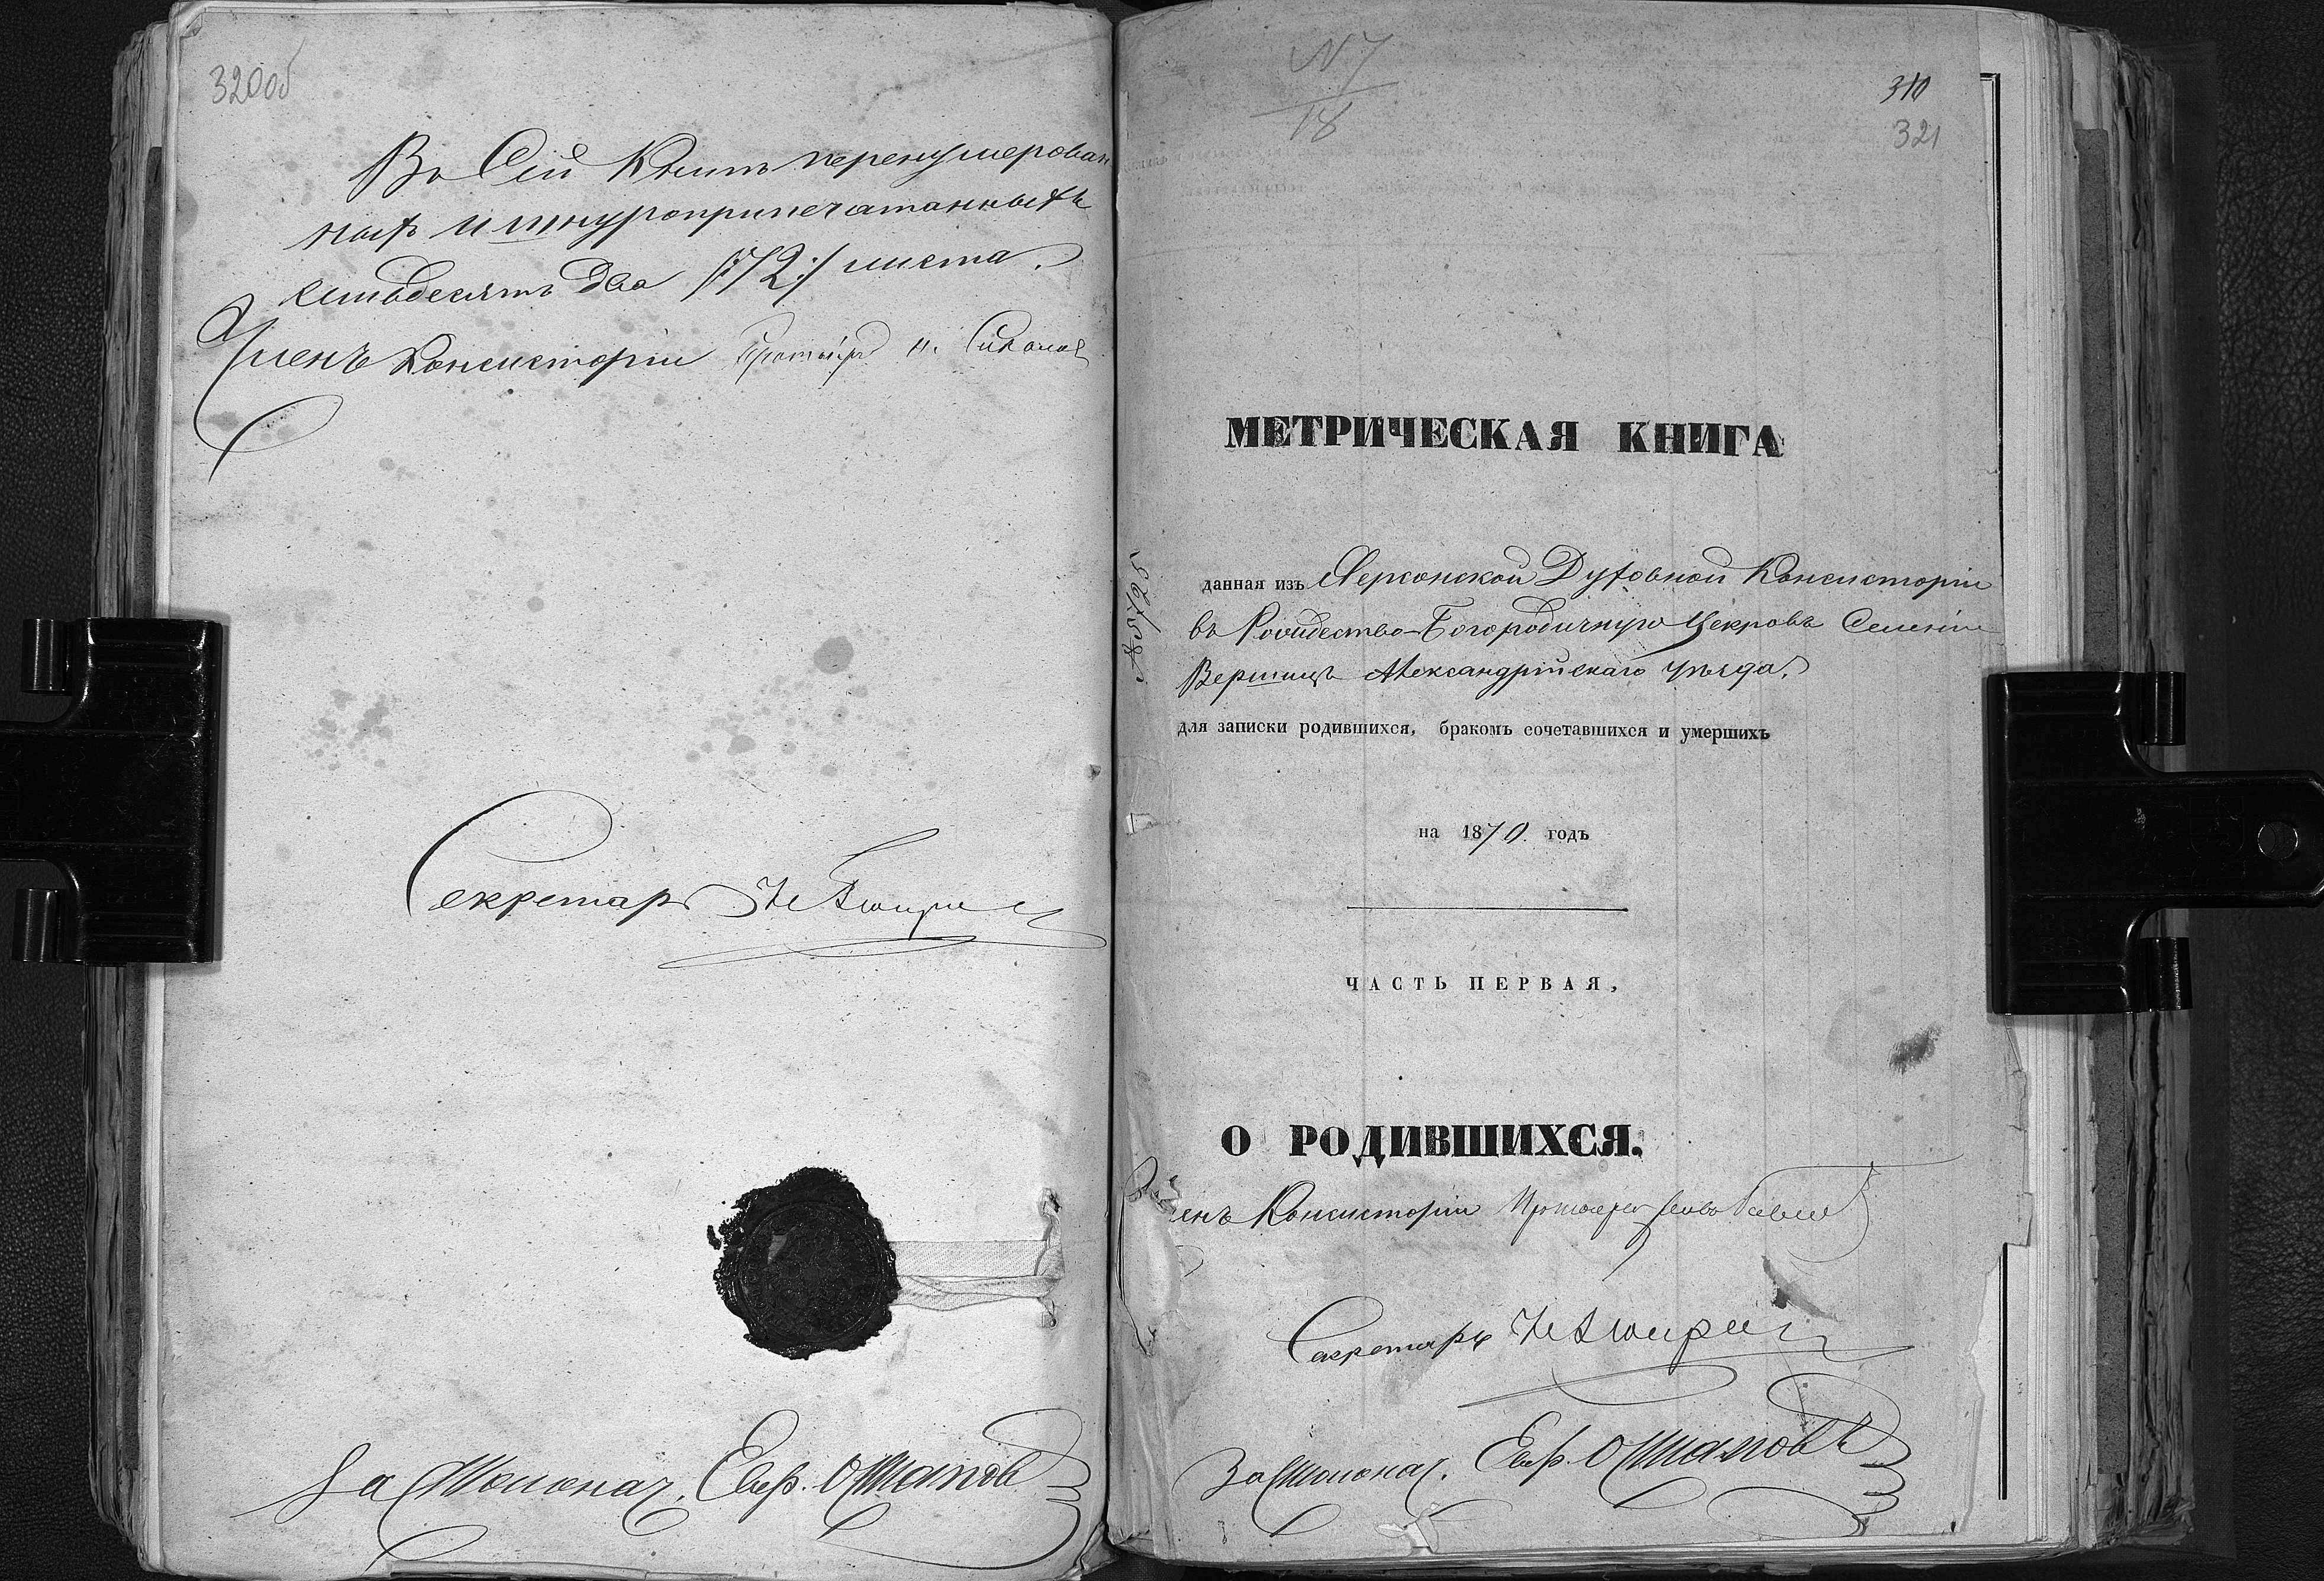 320об
Въ Сей Книгѣ перенумерован
ныхъ и шнуроприпечатанныхъ
семьдесятъ два /:72:/ листа.
Членъ Консисторіи Протоіер
Секретарь
За Столонач. Евф. Остаповъ
№ 7
18
310
321
МЕТРИЧЕСКАЯ КНИГА
данная изъ Херсонской Духовной Консисторіи
въ Рождество-Богородичную Церковь Селенія
Вершицъ Александрійскаго уѣзда.
для записки родившихся, бракомъ сочетавшихся и умершихъ
на 1870 годъ
ЧАСТЬ ПЕРВАЯ,
О РОДИВШИХСЯ.
Членъ Консисторіи Протоіерей
Секретарь
За Столонач. Евф. Остаповъ